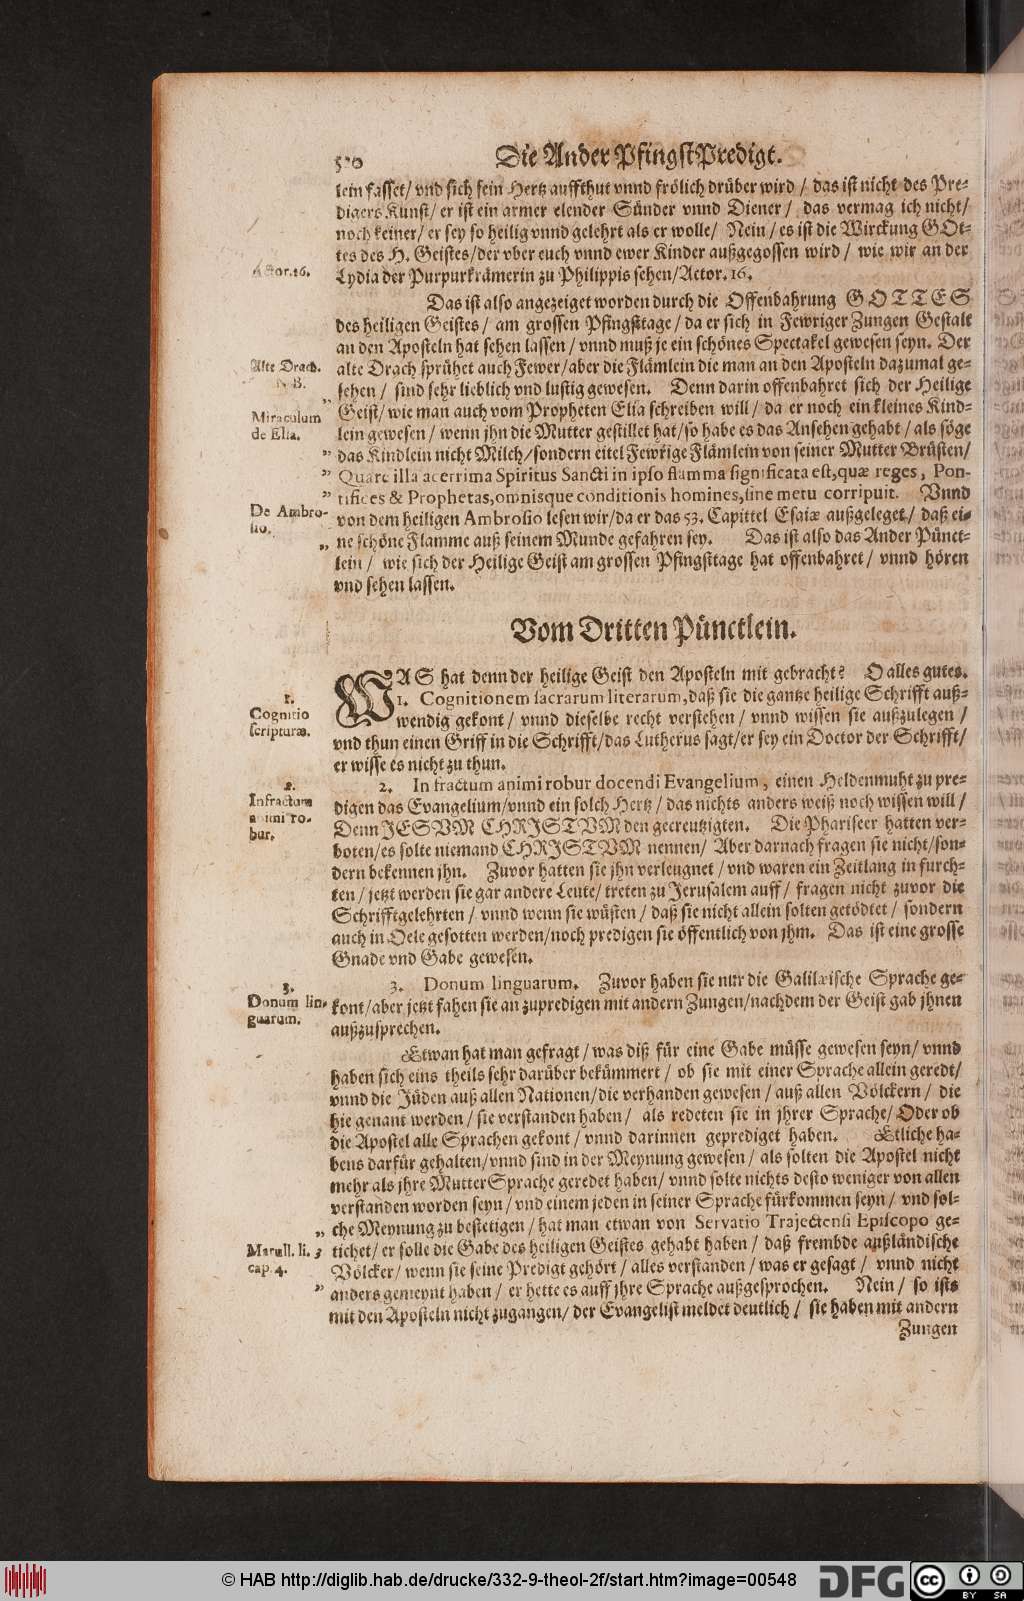 Die Ander PfingstPredigt.
lein fasset/ vnd sich sein Hertz auffthut vnnd frölich drüber wird / das ist nicht des Pre-
digers Kunst/ er ist ein armer elender Sünder vnnd Diener / das vermag ich nicht/
noch keiner/ er sey so heilig vnnd gelehrt als er wolle/ Nein / es ist die Wirckung GOt-
tes des H. Geistes/der vber euch vnnd ewer Kinder außgegossen wird / wie wir an der
Actor.16.
Lydia der Purpurkrämerin zu Philippis sehen/Actor. 16.
Das ist also angezeiget worden durch die Offenbahrung GOTTES
des heiligen Geistes / am grossen Pfingsttage / da er sich in Fewriger Zungen Gestalt
an den Aposteln hat sehen lassen / vnnd muß je ein schönes Spectakel gewesen seyn. Der
Alte Drach.
alte Drach sprühet auch Fewer/aber die Flämlein die man an den Aposteln dazumal ge-
N.B.
sehen / sind sehr lieblich vnd lustig gewesen. Denn darin offenbahret sich der Heilige
„
Geist/ wie man auch vom Propheten Elia schreiben will / da er noch ein kleines Kind-
Miraculum
de Elia.
lein gewesen / wenn jhn die Mutter gestillet hat/so habe es das Ansehen gehabt / als söge
” das Kindlein nicht Milch/sondern eitel Fewrige Flämlein von seiner Mutter Brüsten/
” Quare illa acerrima Spiritus Sancti in ipso flamma significata est,quæ reges, Pon-
” tifices & Prophetas,omnisque conditionis homines,sine metu corripuit. Vnnd
De Ambro-
sio.
von dem heiligen Ambrosio lesen wir/da er das 53. Capittel Esaiæ außgeleget/ daß ei-
„ ne schöne Flamme auß seinem Munde gefahren sey. Das ist also das Ander Pünct-
lein / wie sich der Heilige Geist am grossen Pfingsttage hat offenbahret / vnnd hören
vnd sehen lassen.
Vom Dritten Pünctlein.
WAS hat denn der heilige Geist den Aposteln mit gebracht? O alles gutes.
1.
Cognitio
scripturæ.
1. Cognitionem sacrarum literarum,daß sie die gantze heilige Schrifft auß-
wendig gekont / vnnd dieselbe recht verstehen / vnnd wissen sie außzulegen /
vnd thun einen Griff in die Schrifft/das Lutherus sagt/er sey ein Doctor der Schrifft/
er wisse es nicht zu thun.
2.
Infractum
animi ro-
bur.
2. Infractum animi robur docendi Evangelium, einen Heldenmuht zu pre-
digen das Evangelium/vnnd ein solch Hertz / das nichts anders weiß noch wissen will /
Denn JESVM CHRISTVM den gecreutzigten. Die Phariseer hatten ver-
boten/es solte niemand CHRISTVM nennen/ Aber darnach fragen sie nicht/son-
dern bekennen jhn. Zuvor hatten sie jhn verleugnet / vnd waren ein Zeitlang in furch-
ten / jetzt werden sie gar andere Leute/ treten zu Jerusalem auff / fragen nicht zuvor die
Schrifftgelehrten / vnnd wenn sie wüsten / daß sie nicht allein solten getödtet / sondern
auch in Oele gesotten werden/noch predigen sie öffentlich von jhm. Das ist eine grosse
Gnade vnd Gabe gewesen.
3.
Donum lin-
guarum.
3. Donum linguarum. Zuvor haben sie nur die Galilæische Sprache ge-
kont/aber jetzt fahen sie an zupredigen mit andern Zungen/nachdem der Geist gab jhnen
außzusprechen.
Etwan hat man gefragt / was diß für eine Gabe müsse gewesen seyn/ vnnd
haben sich eins theils sehr darüber bekümmert / ob sie mit einer Sprache allein geredt/
vnnd die Jüden auß allen Nationen/die verhanden gewesen / auß allen Völckern / die
hie genant werden / sie verstanden haben / als redeten sie in jhrer Sprache/ Oder ob
die Apostel alle Sprachen gekont / vnnd darinnen geprediget haben. Etliche ha-
bens darfür gehalten/vnnd sind in der Meynung gewesen / als solten die Apostel nicht
mehr als jhre MutterSprache geredet haben/ vnnd solte nichts desto weniger von allen
verstanden worden seyn / vnd einem jeden in seiner Sprache fürkommen seyn / vnd sol-
„ che Meynung zu bestetigen / hat man etwan von Servatio Trajectensi Episcopo ge-
Marull. li. 3
cap. 4.
tichet/ er solle die Gabe des heiligen Geistes gehabt haben / daß frembde außländische
Völcker/ wenn sie seine Predigt gehört / alles verstanden / was er gesagt / vnnd nicht
” anders gemeynt haben / er hette es auff jhre Sprache außgesprochen. Nein / so ists
mit den Aposteln nicht zugangen/ der Evangelist meldet deutlich / sie haben mit andern
Zungen
© HAB http://diglib.hab.de/drucke/332-9-theol-2f/start.htm?image=00548
DFG
cc BY SA